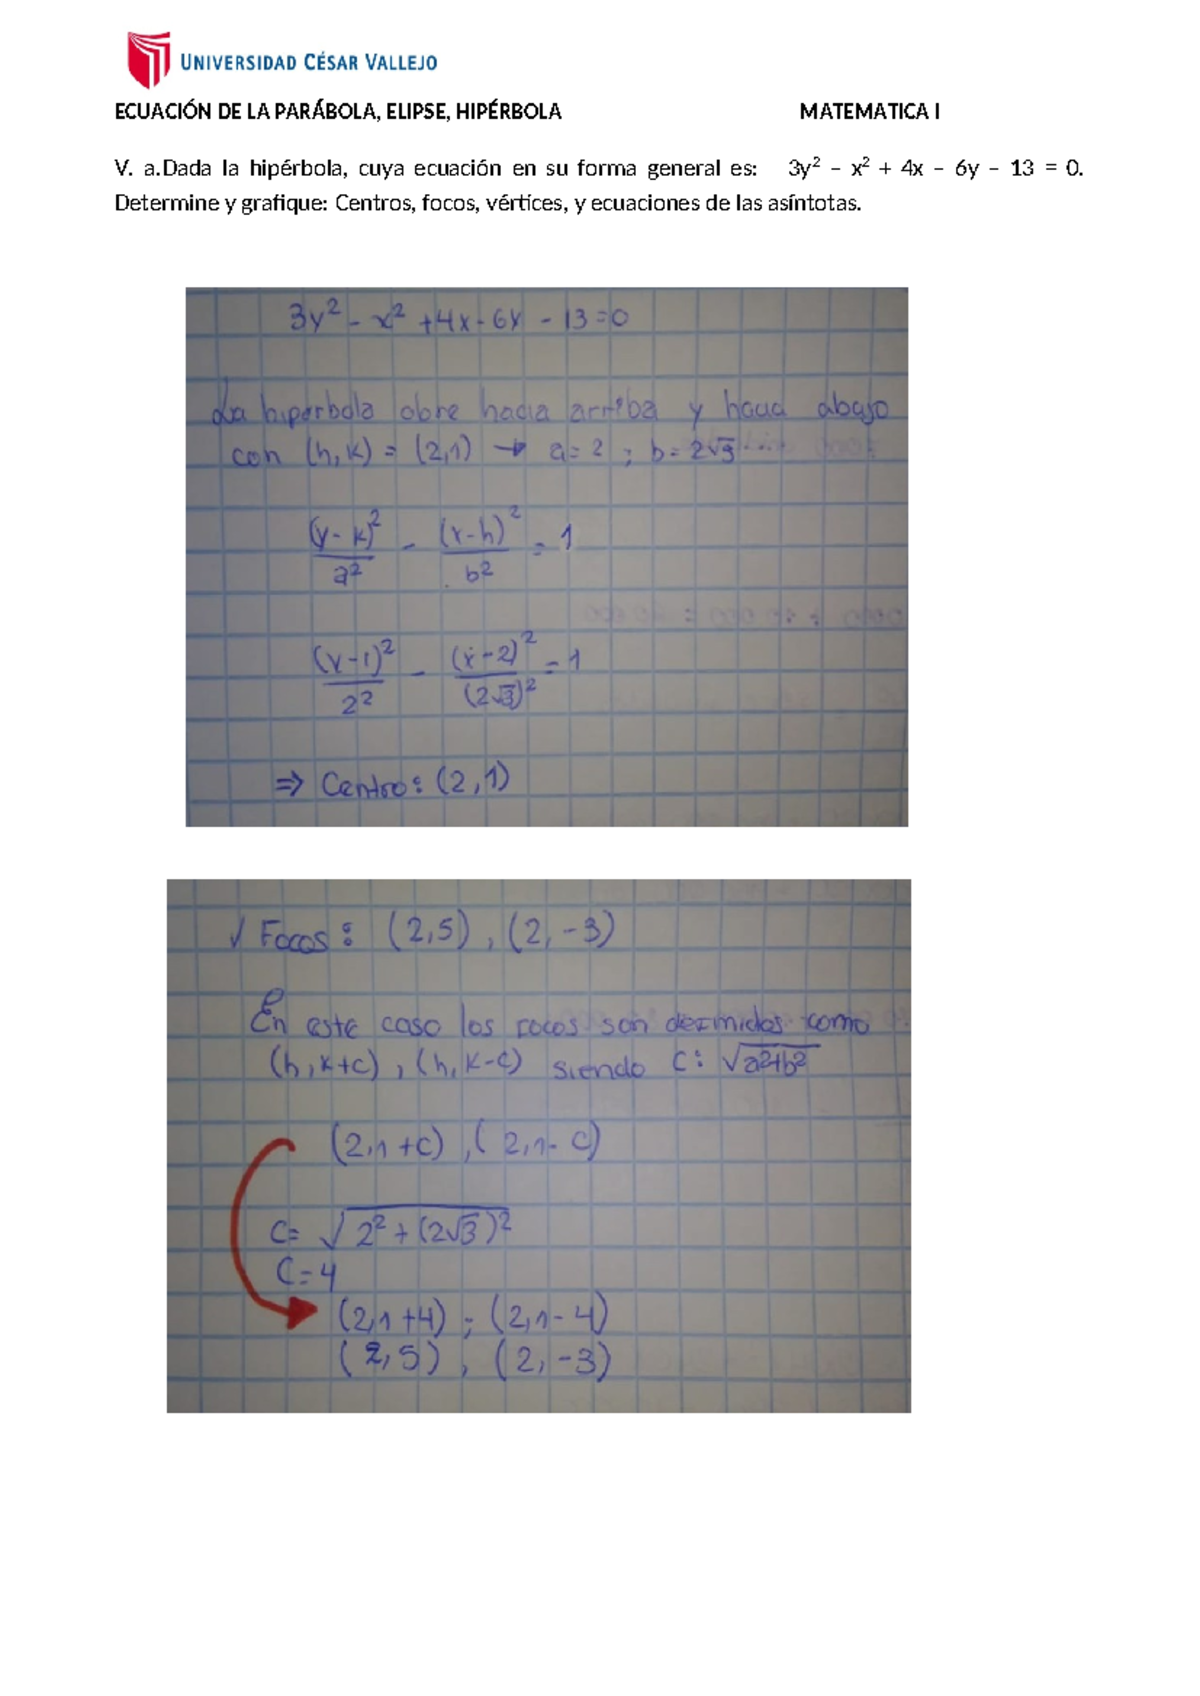 UNIVERSIDAD CÉSAR VALLEJO
ECUACIÓN DE LA PARÁBOLA, ELIPSE, HIPÉRBOLA MATEMATICA I
V. a.Dada la hipérbola, cuya ecuación en su forma general es: 3y² – x² + 4x – 6y – 13 = 0.
Determine y grafique: Centros, focos, vértices, y ecuaciones de las asíntotas.
3y² - x² + 4x - 6y - 13 = 0
La hipérbola abre hacia arriba y hacia abajo
con (h, k) = (2,1) → a = 2 ; b = 2√3
(y - k)²/a² - (x - h)²/b² = 1
(y - 1)²/2² - (x - 2)²/(2√3)² = 1
⇒ Centro: (2, 1)
√ Focos: (2,5) , (2, -3)
En este caso los focos son definidos como
(h, k+c) , (h, k-c) siendo c: √a²+b²
(2,1 +c) , (2,1- c)
C= √2² + (2√3)²
C=4
(2,1 +4) ; (2,1 - 4)
(2,5) , (2, -3)